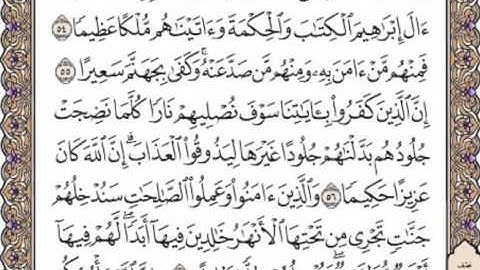 ءَالَ إِبْرَٰهِيمَ ٱلْكِتَٰبَ وَٱلْحِكْمَةَ وَءَاتَيْنَٰهُم مُّلْكًا عَظِيمًا ۝٥٤
فَمِنْهُم مَّنْ ءَامَنَ بِهِۦ وَمِنْهُم مَّن صَدَّ عَنْهُ ۚ وَكَفَىٰ بِجَهَنَّمَ سَعِيرًا ۝٥٥
إِنَّ ٱلَّذِينَ كَفَرُوا۟ بِـَٔايَٰتِنَا سَوْفَ نُصْلِيهِمْ نَارًا كُلَّمَا نَضِجَتْ
جُلُودُهُم بَدَّلْنَٰهُمْ جُلُودًا غَيْرَهَا لِيَذُوقُوا۟ ٱلْعَذَابَ ۗ إِنَّ ٱللَّهَ كَانَ
عَزِيزًا حَكِيمًا ۝٥٦ وَٱلَّذِينَ ءَامَنُوا۟ وَعَمِلُوا۟ ٱلصَّٰلِحَٰتِ سَنُدْخِلُهُمْ
جَنَّٰتٍ تَجْرِى مِن تَحْتِهَا ٱلْأَنْهَٰرُ خَٰلِدِينَ فِيهَآ أَبَدًا ۖ لَّهُمْ فِيهَآ